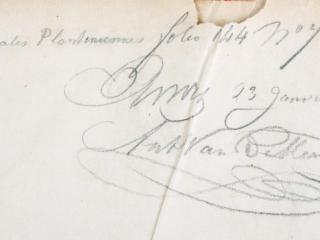 ales Plantiniennes folio 144 No 7
Anvers 23 Janvi
Ant Van